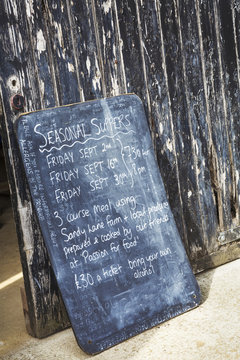 SEASONAL SUPPERS
FRIDAY SEPT 2nd
FRIDAY SEPT 16th
FRIDAY SEPT 30th
7.30pm
3 course meal using
Sandy Lane farm + local produce
prepared & cooked by our friends
at Passion for food
£30 a ticket bring your own
alcohol